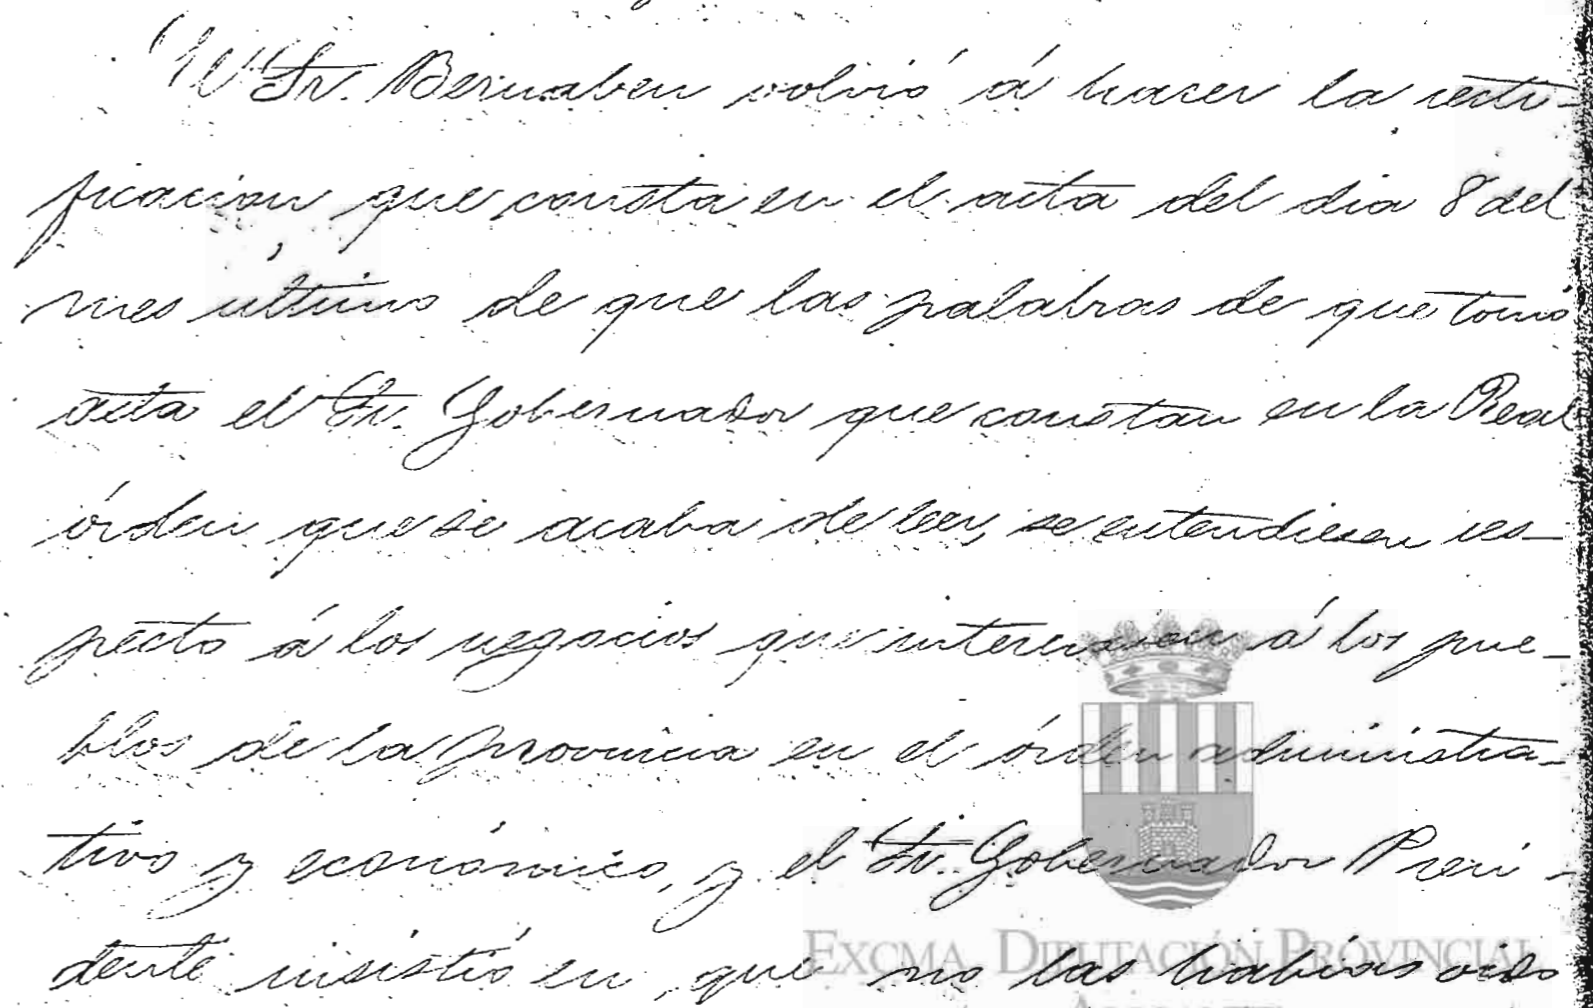 El Sr. Bernabeu volvió á hacer la recti-
ficacion que consta en el acta del dia 8 del
mes último de que las palabras de que tomó
acta el Sr. Gobernador que constan en la Real
órden que se acaba de leer, se entendiesen res-
pecto á los negocios que interesasen á los pue-
blos de la provincia en el órden administra-
tivo y económico, y el Sr. Gobernador Presi-
dente insistió en que no las habia oido
EXCMA. DIPUTACIÓN PROVINCIAL